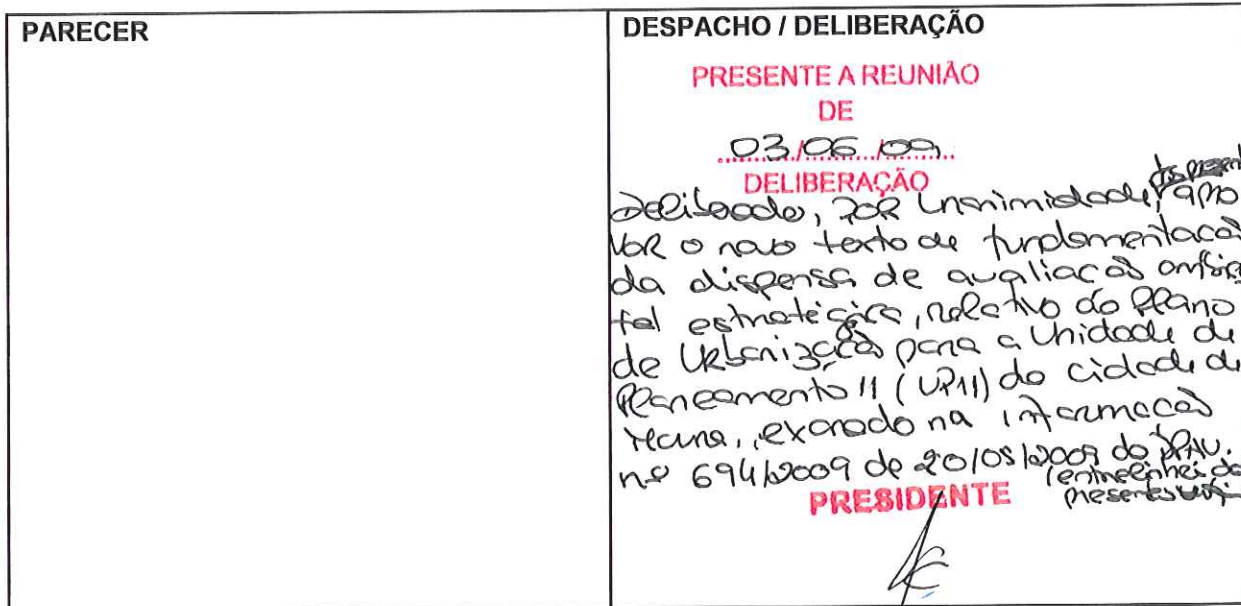 PARECER
DESPACHO / DELIBERAÇÃO
PRESENTE A REUNIÃO
DE
03/06/09
DELIBERAÇÃO
Deliberado, por unanimidade, dos present apro
var o novo texto de fundamentação
da dispensa de avaliação ambien
tal estratégica, relativo ao Plano
de Urbanização para a Unidade de
Planeamento 11 (UP11) da cidade de
exarado na informação
nº 694/2009 de 20/05/2009 do
(entrelinhei dos
presentes
PRESIDENTE